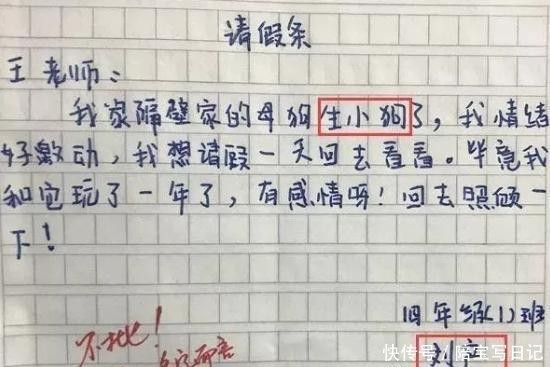 请假条
王老师：
我家隔壁家的母狗生小狗了，我情绪
好激动，我想请假一天回去看看。毕竟我
和它玩了一年了，有感情呀！回去照顾一
下！
四年级(1)班
不批！
刘
快传号/陪宝写日记